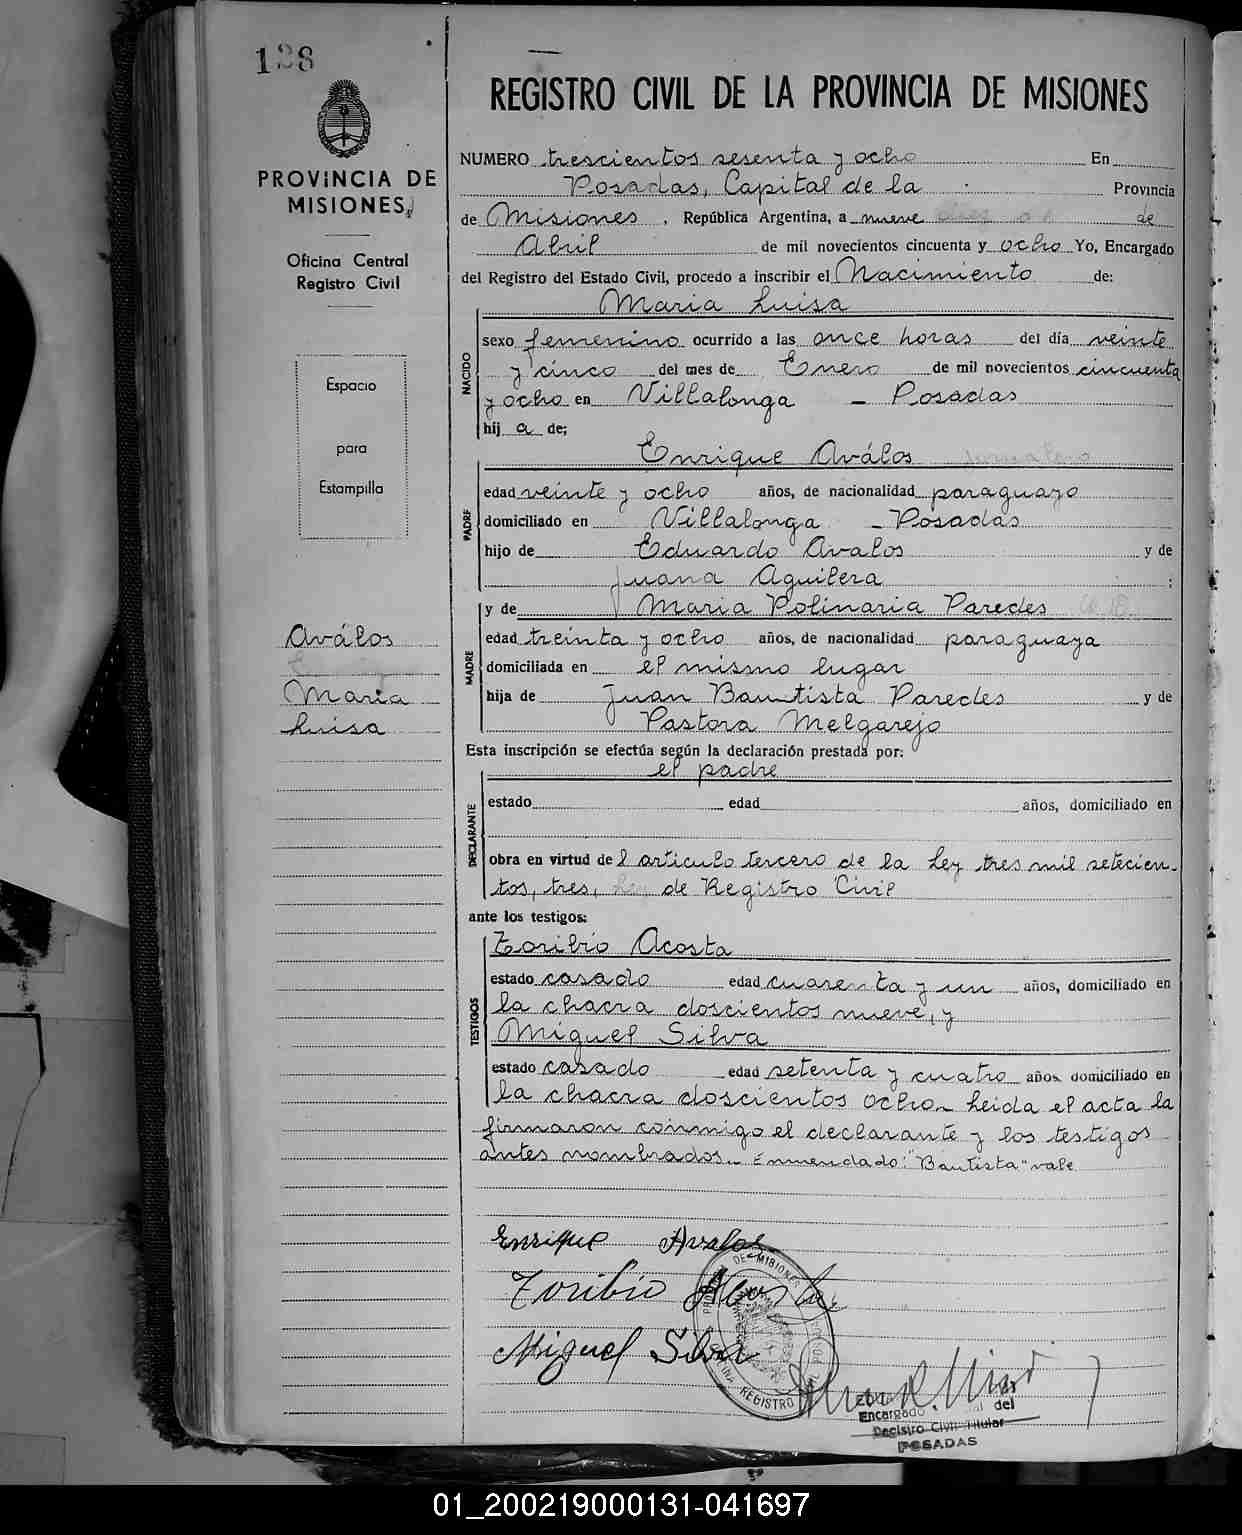 138
PROVINCIA DE
MISIONES
Oficina Central
Registro Civil
Espacio
para
Estampilla
Aválos
Maria
Luisa
REGISTRO CIVIL DE LA PROVINCIA DE MISIONES
NUMERO trescientos sesenta y ocho En
Posadas, Capital de la Provincia
de Misiones, República Argentina, a nueve de
Abril de mil novecientos cincuenta y ocho Yo, Encargado
del Registro del Estado Civil, procedo a inscribir el Nacimiento de:
Maria Luisa
NACIDO
sexo femenino ocurrido a las once horas del día veinte
y cinco del mes de Enero de mil novecientos cincuenta
y ocho en Villalonga - Posadas
hij a de;
Enrique Aválos jornalero
PADRE
edad veinte y ocho años, de nacionalidad paraguayo
domiciliado en Villalonga - Posadas
hijo de Eduardo Avalos y de
Juana Aguilera :
y de Maria Polinaria Paredes
MADRE
edad treinta y ocho años, de nacionalidad paraguaya
domiciliada en el mismo lugar
hija de Juan Bautista Paredes y de
Pastora Melgarejo
Esta inscripción se efectúa según la declaración prestada por:
el padre
DECLARANTE
estado edad años, domiciliado en
obra en virtud de l articulo tercero de la Ley tres mil setecien-
tos, tres, Ley de Registro Civil
ante los testigos:
Toribio Acosta
TESTIGOS
estado casado edad cuarenta y un años, domiciliado en
la chacra doscientos nueve, y
Miguel Silva
estado casado edad setenta y cuatro años, domiciliado en
la chacra doscientos ocho- Leida el acta la
firmaron conmigo el declarante y los testigos
antes nombrados.- Enmendado: "Bautista" vale
Enrique Avalos
Toribio Acosta
Miguel Silva
DE MISIONES
REGISTRO
Encargado del
Registro Civil Titular
POSADAS
01_200219000131-041697